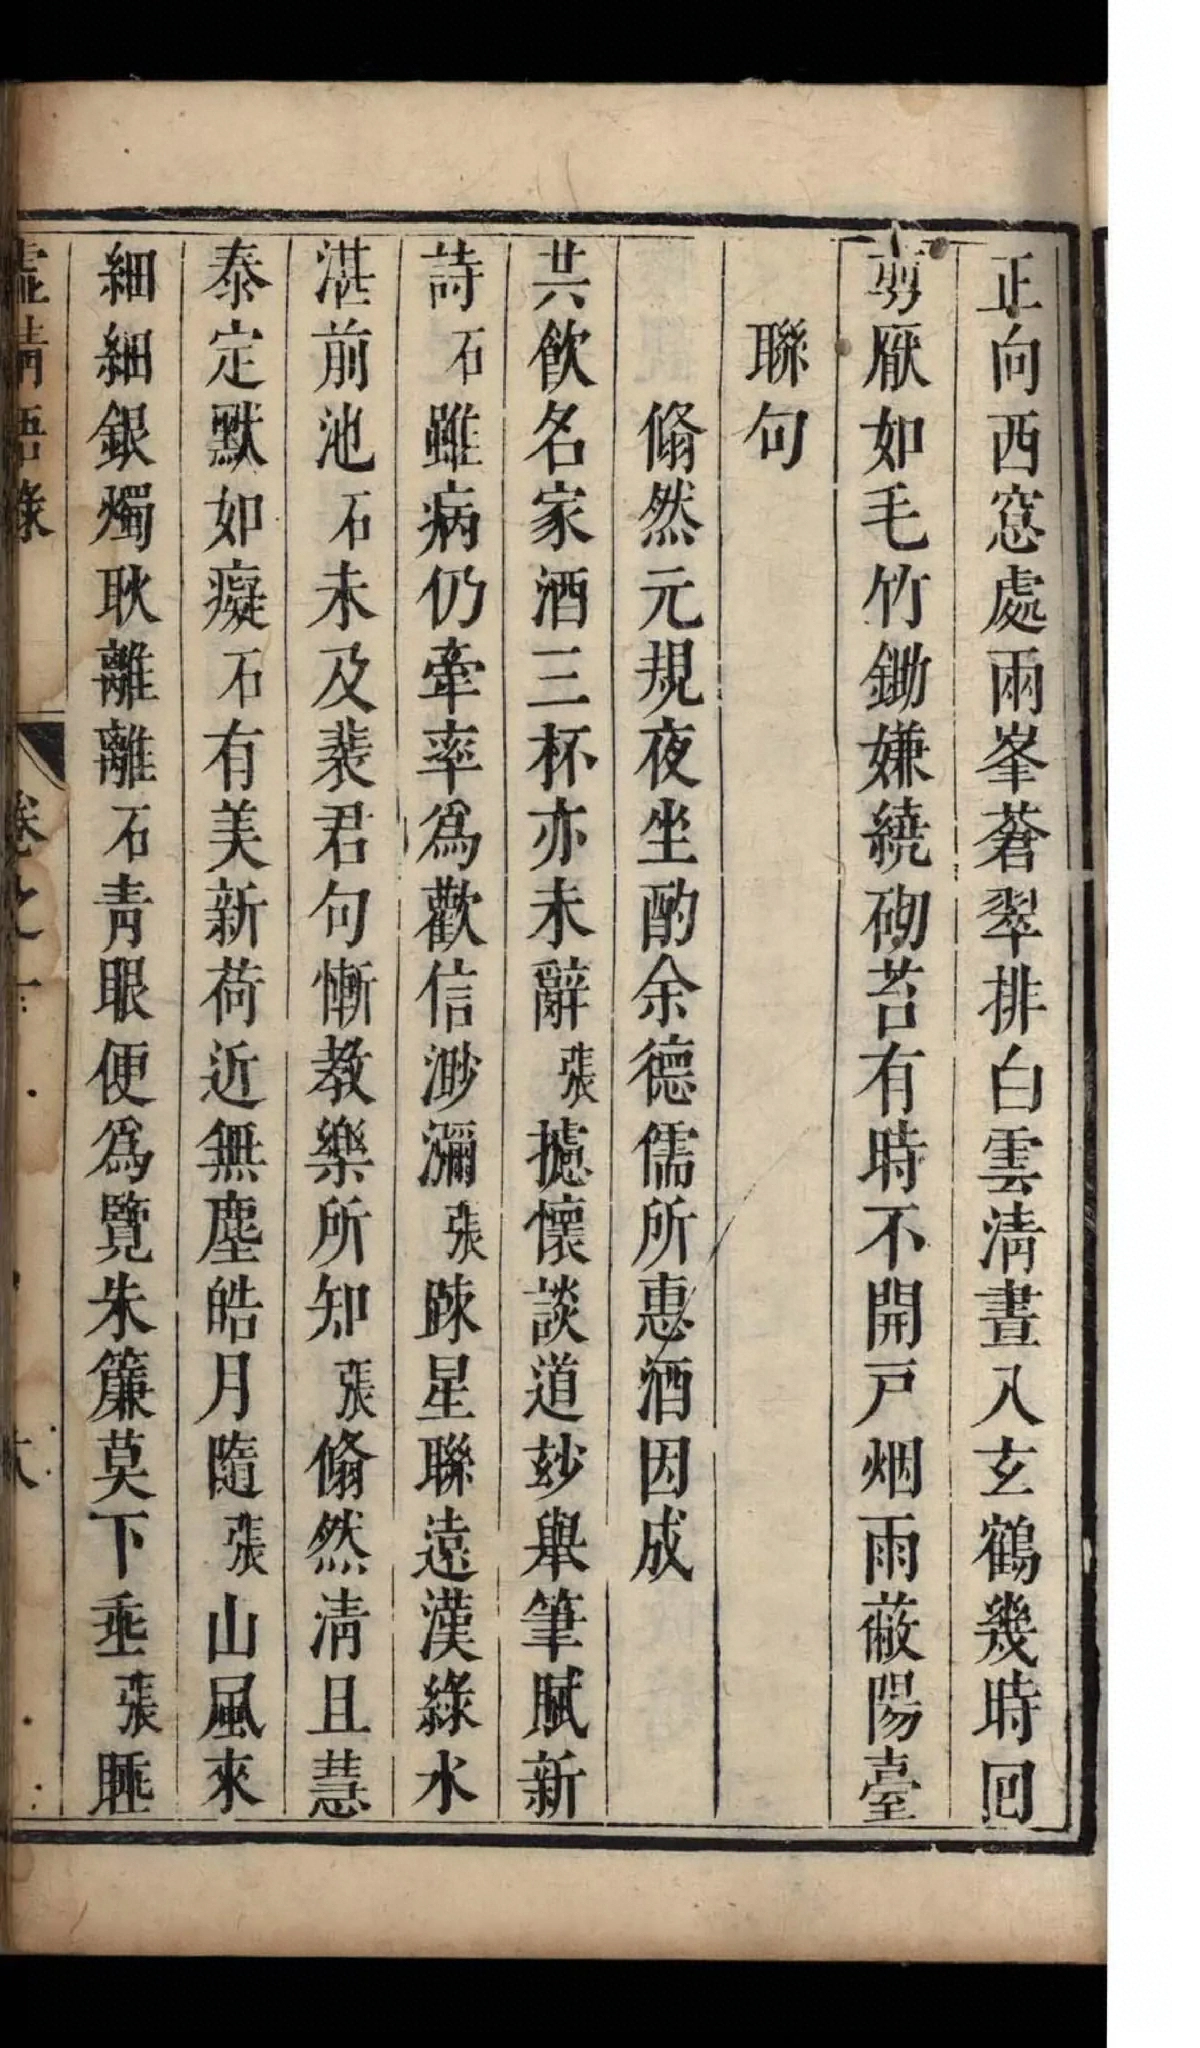 正向西窓處雨峯蒼翠排白雲清晝入玄鶴幾時回
剪厭如毛竹鋤嫌繞砌苔有時不開戸烟雨蔽陽臺
聯句
翛然元規夜坐酌余德儒所惠酒因成
共飲名家酒三杯亦未辭張攄懷談道玅舉筆賦新
詩石雖病仍牽率爲歡信渺瀰張踈星聯遠漢綠水
湛前池石未及裴君句慚教樂所知張翛然清且慧
泰定默如癡石有美新荷近無塵皓月隨張山風來
細細銀燭耿離離石青眼便爲覽朱簾莫下垂張睡
虛靖語錄 卷之